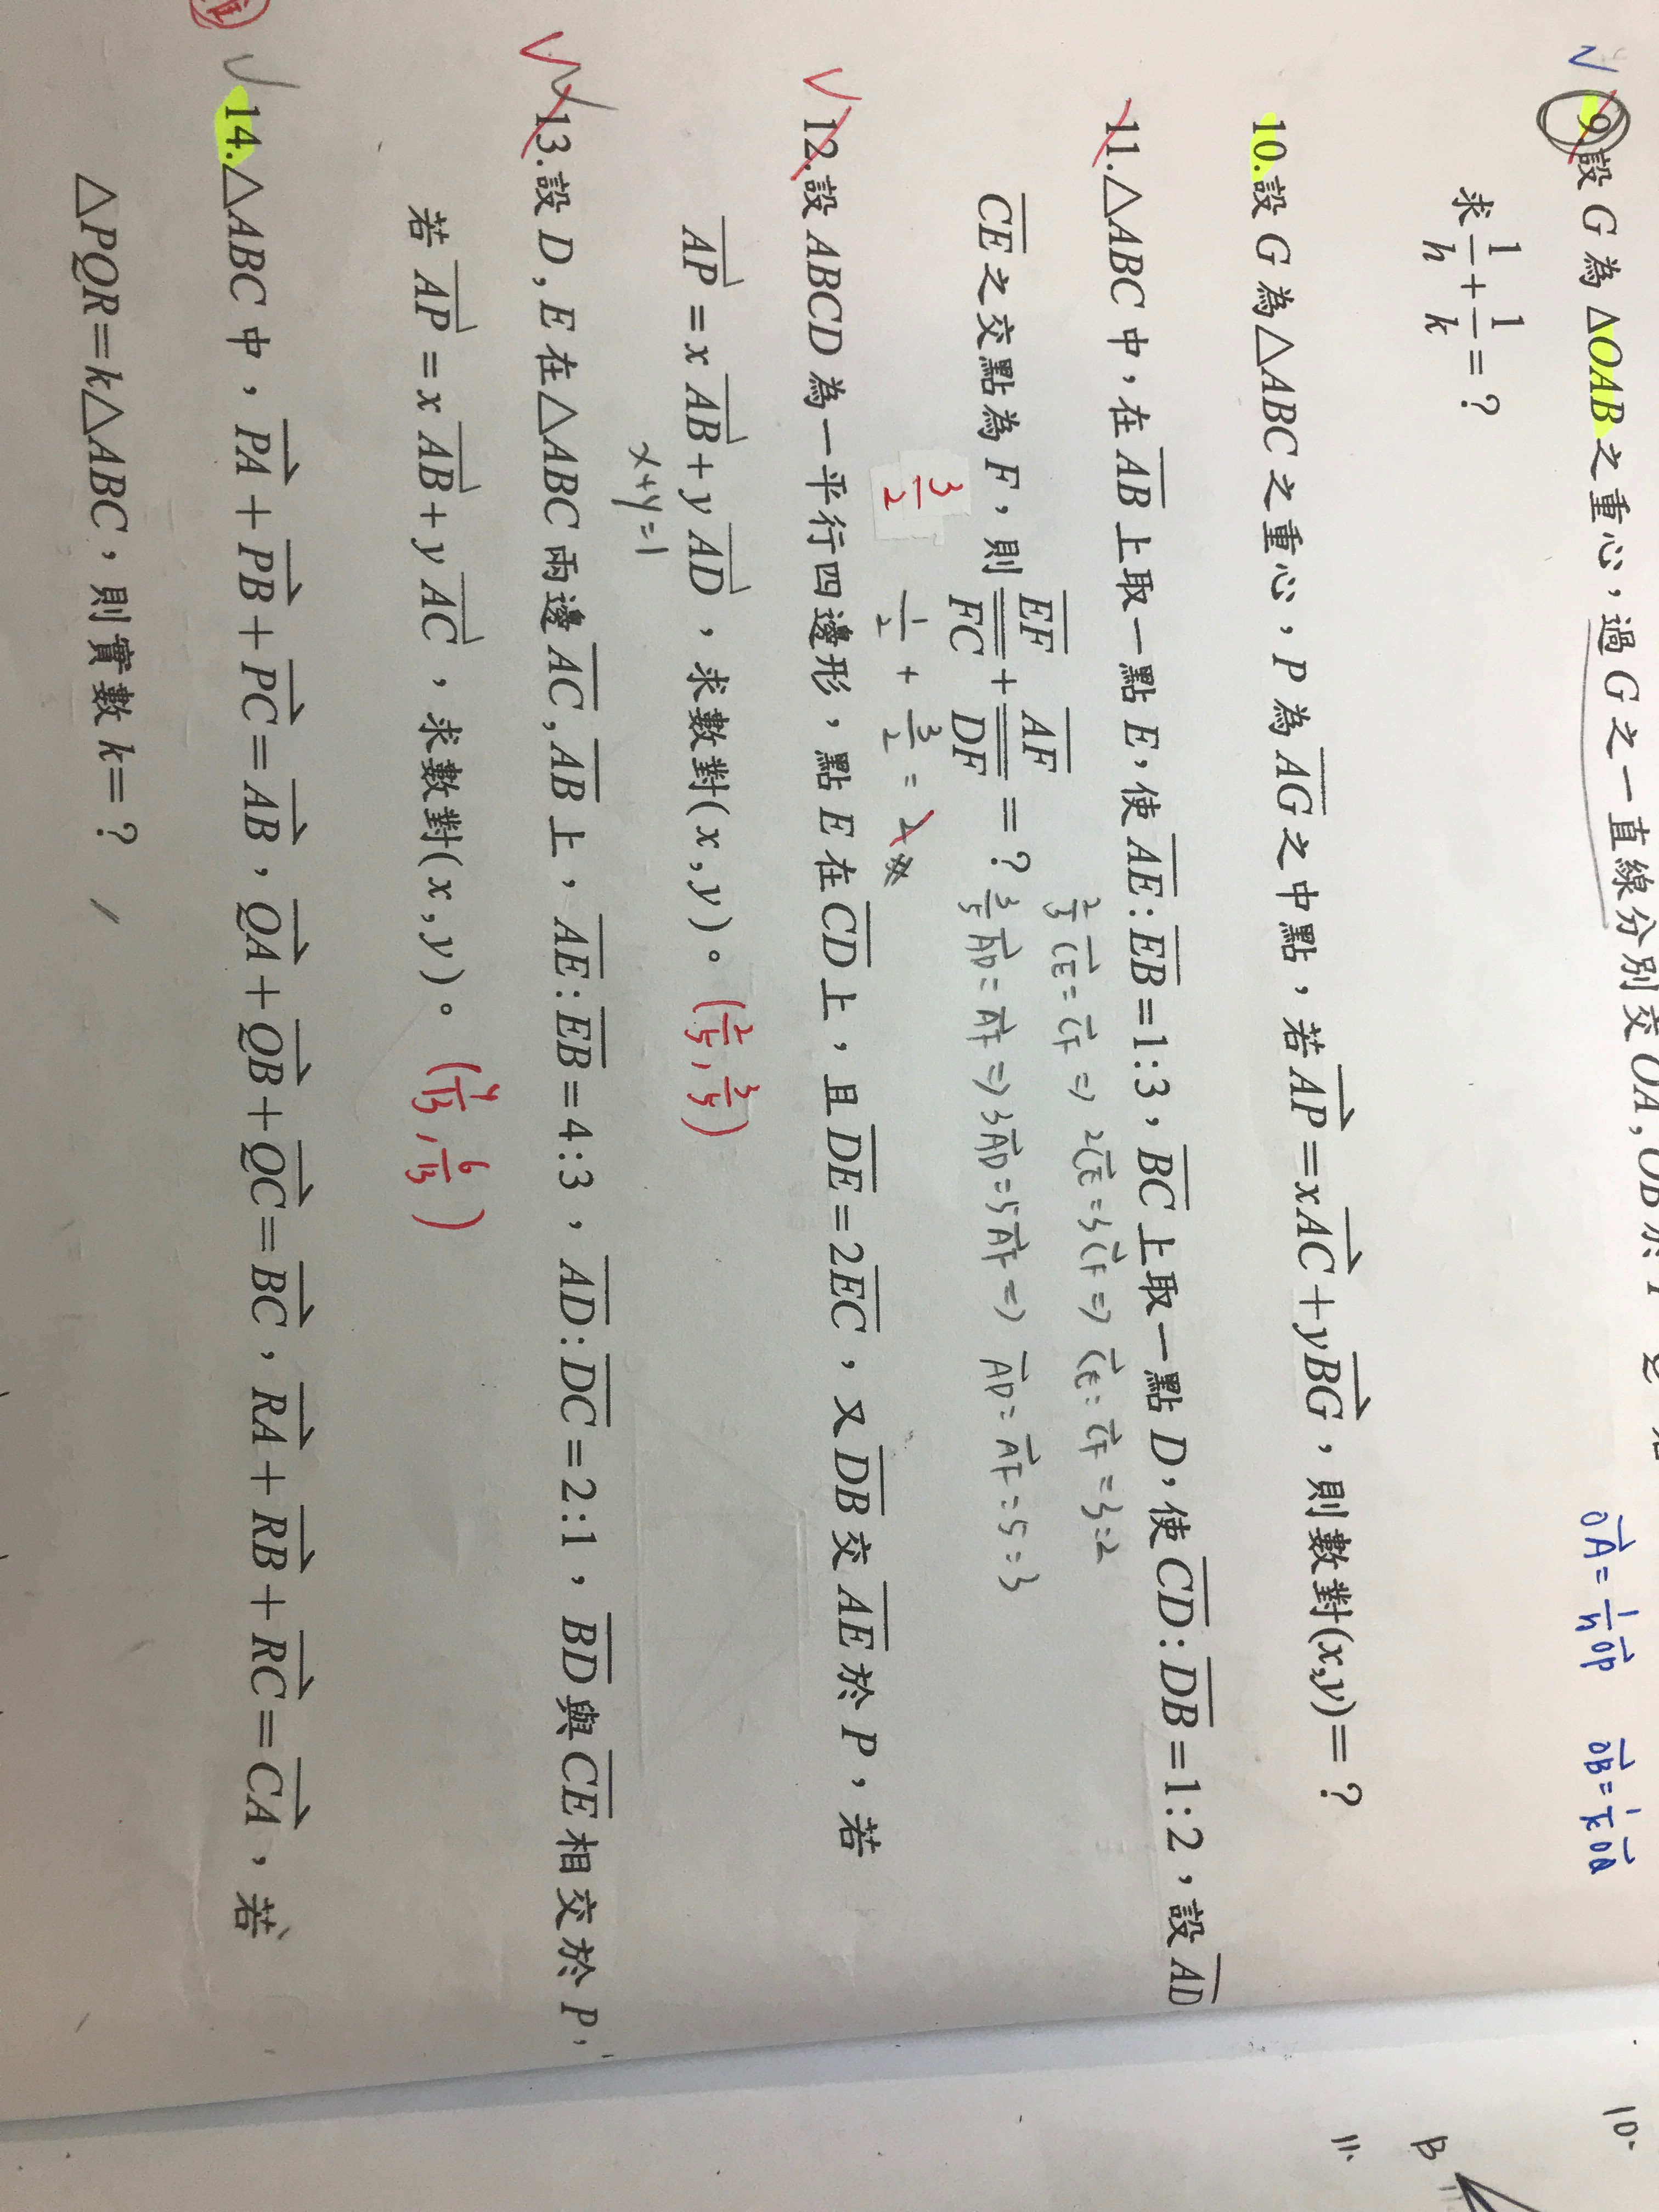 9.設 G 為 △OAB 之重心,過 G 之一直線分別交 OA, OB 於
求 1/h + 1/k = ?
OA = 1/h OP OB = 1/k OQ
10.設 G 為 △ABC 之重心,P 為 AG 之中點,若 AP = xAC + yBG,則數對(x,y) = ?
11.△ABC 中,在 AB 上取一點 E,使 AE : EB = 1 : 3,BC 上取一點 D,使 CD : DB = 1 : 2,設 AD
2/3 CE = CF ⇒ 2CE = 3CF ⇒ CE : CF = 3:2
CE 之交點為 F,則 EF/FC + AF/DF = ?
3/5 AD = AF ⇒ 3AD = 5AF ⇒ AD = AF = 5:3
3/2
1/2 + 3/2 = 2
12.設 ABCD 為一平行四邊形,點 E 在 CD 上,且 DE = 2EC,又 DB 交 AE 於 P,若
AP = x AB + y AD,求數對(x, y)。 (2/5, 3/5)
x+y=1
13.設 D, E 在 △ABC 兩邊 AC, AB 上,AE : EB = 4 : 3,AD : DC = 2 : 1,BD 與 CE 相交於 P,
若 AP = x AB + y AC,求數對(x, y)。 (4/13, 6/13)
14.△ABC 中,PA + PB + PC = AB,QA + QB + QC = BC,RA + RB + RC = CA,若
△PQR = k△ABC,則實數 k = ?
10.
B
11.